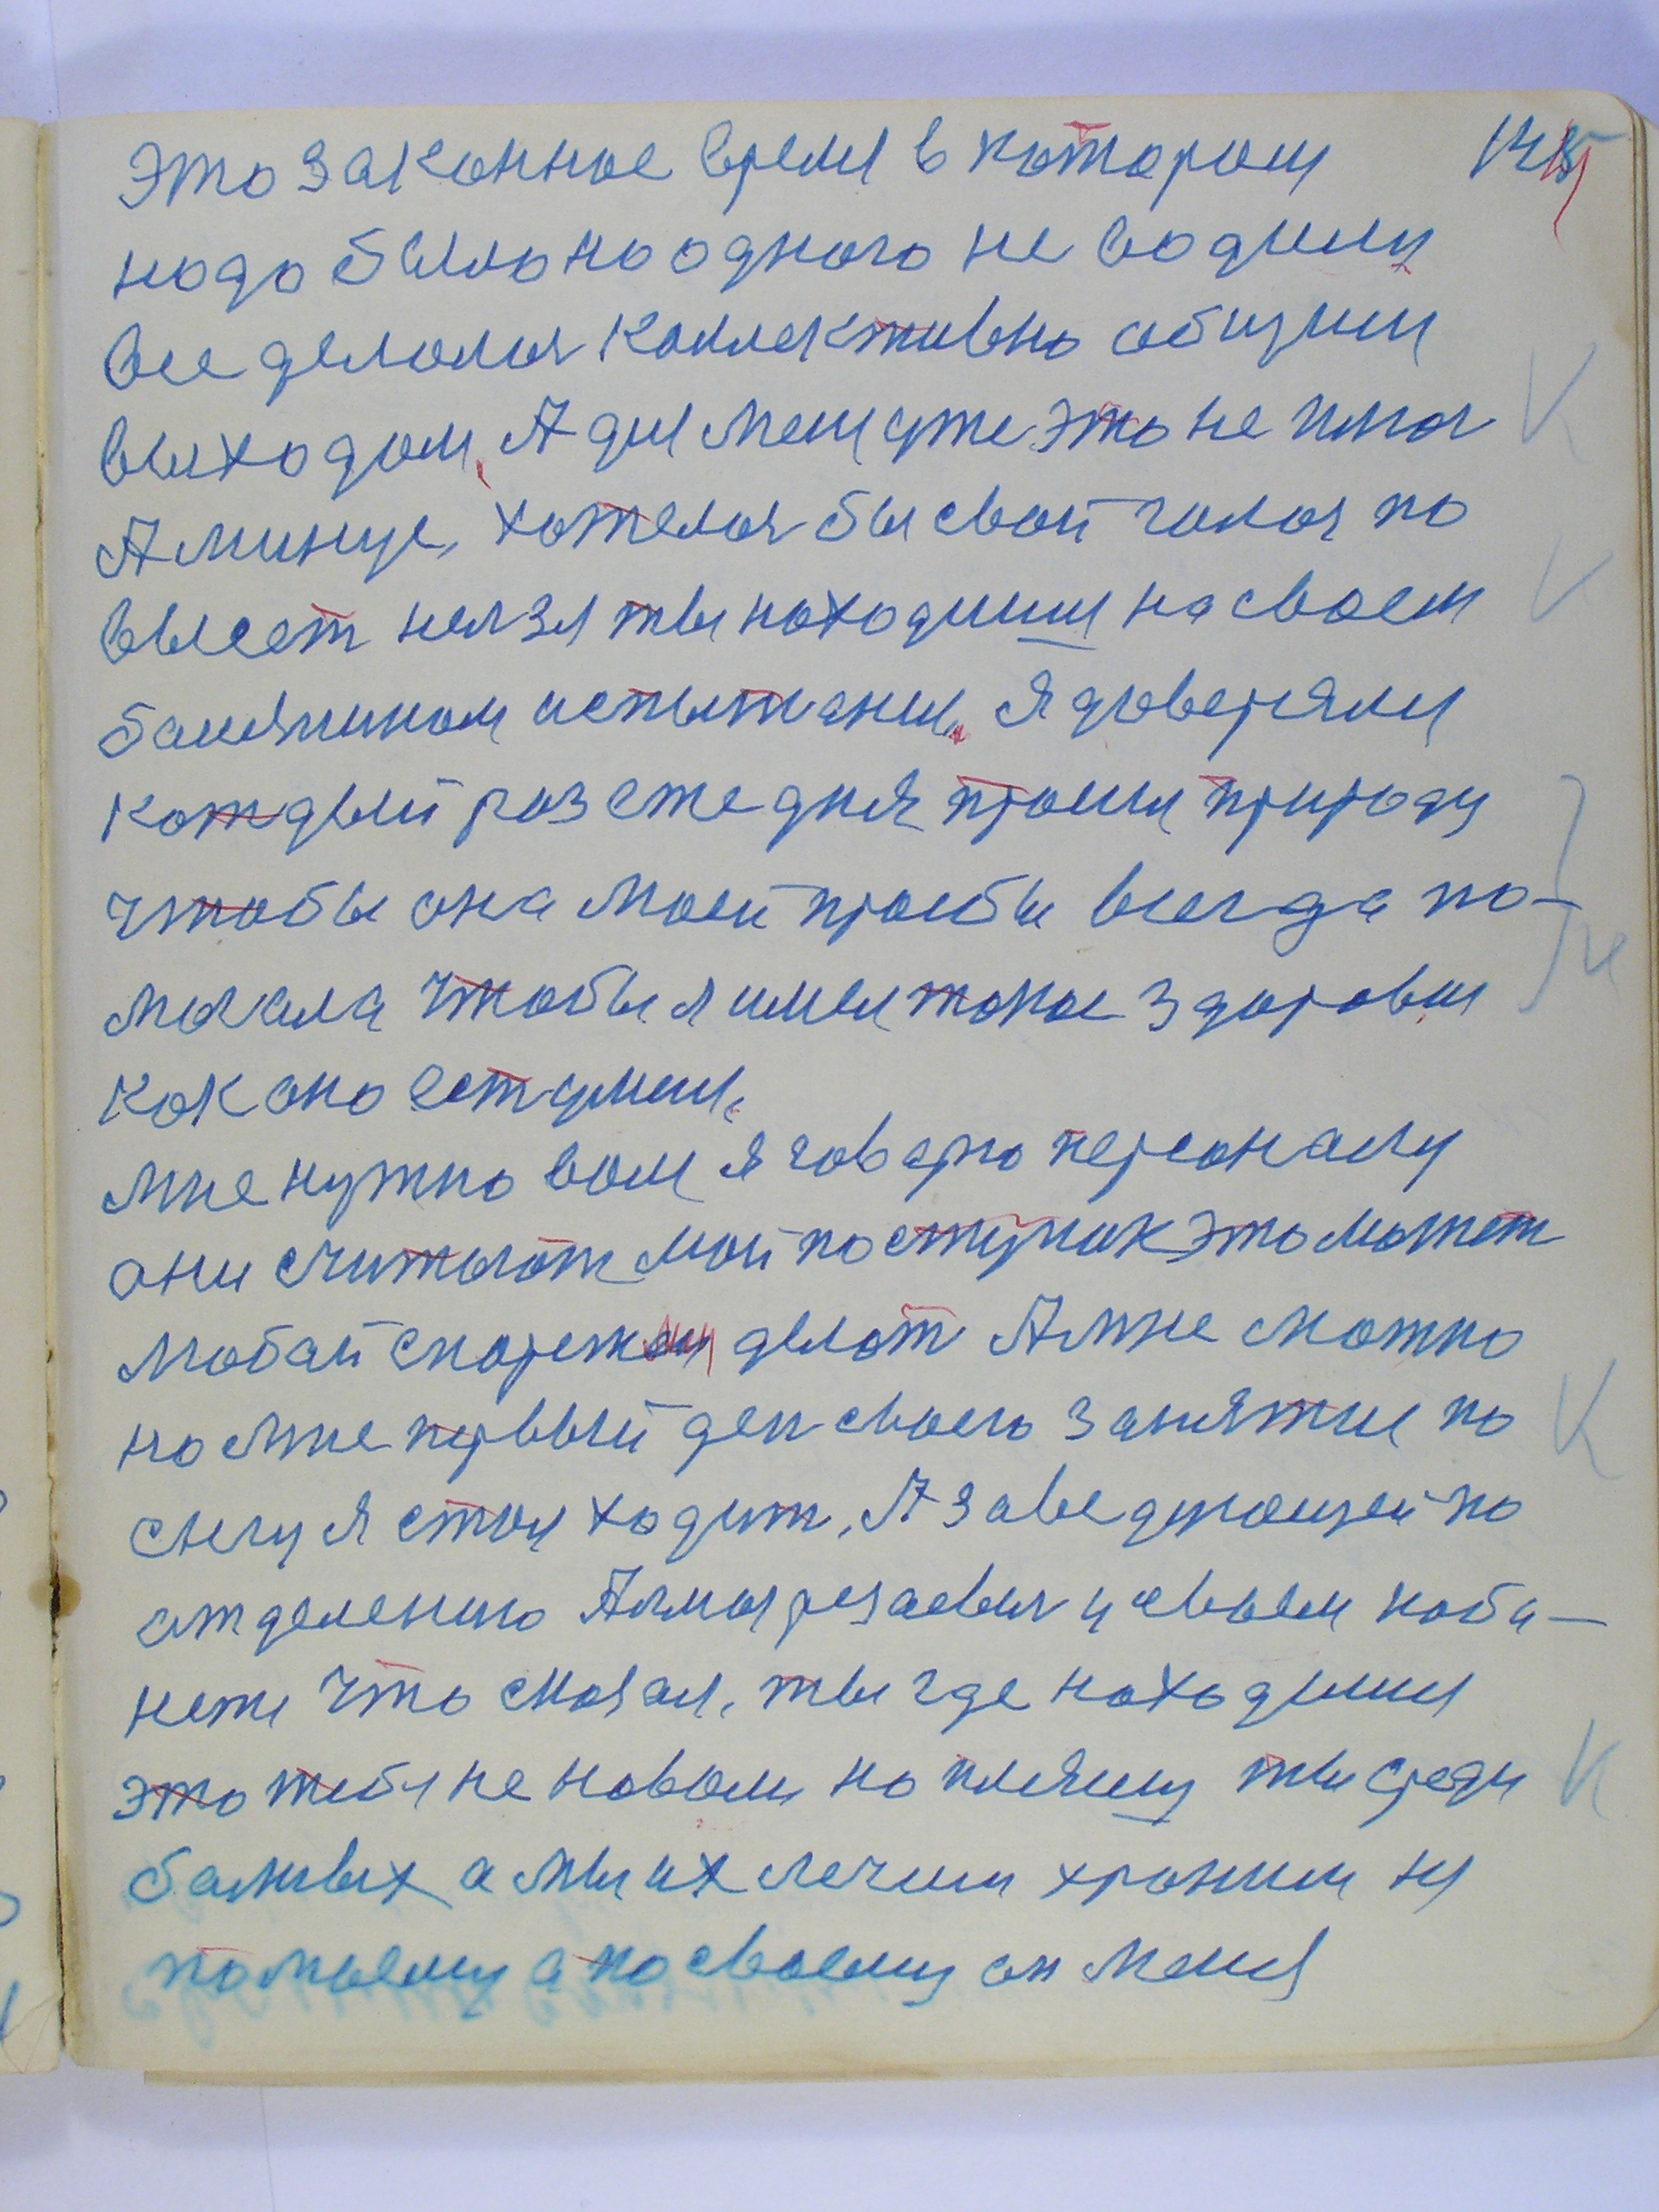 это законное время в котором
надо было но одного не водили
все делалося коллективно общим
выходом, А для меня уже это не пица
А минус, хотелося бы свой голос по
высет нелзя ты находишя на своем
балничном испытании, я доверяли
каждый раз ежедня просил природу
чтобы она моей прозбы всегда по-
могала чтобы я имел такое здоровия
как оно ест у меня.
мне нужно вам я говорю персоналу
они считают мой поступак это может
любай делат А мне можно
но мне первый ден своего занятия по
снегу я стал ходит, А заведующей по
отделению у своем каби-
нети что сказал, ты где находишя
это тебя не на пляшу ты среди
балных а мы их лечим храним ни
по моему а по своему он меня